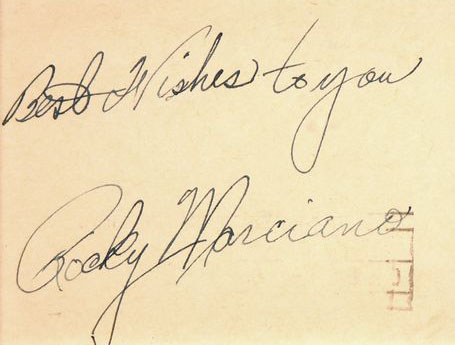 Best Wishes to you
Rocky Marciano